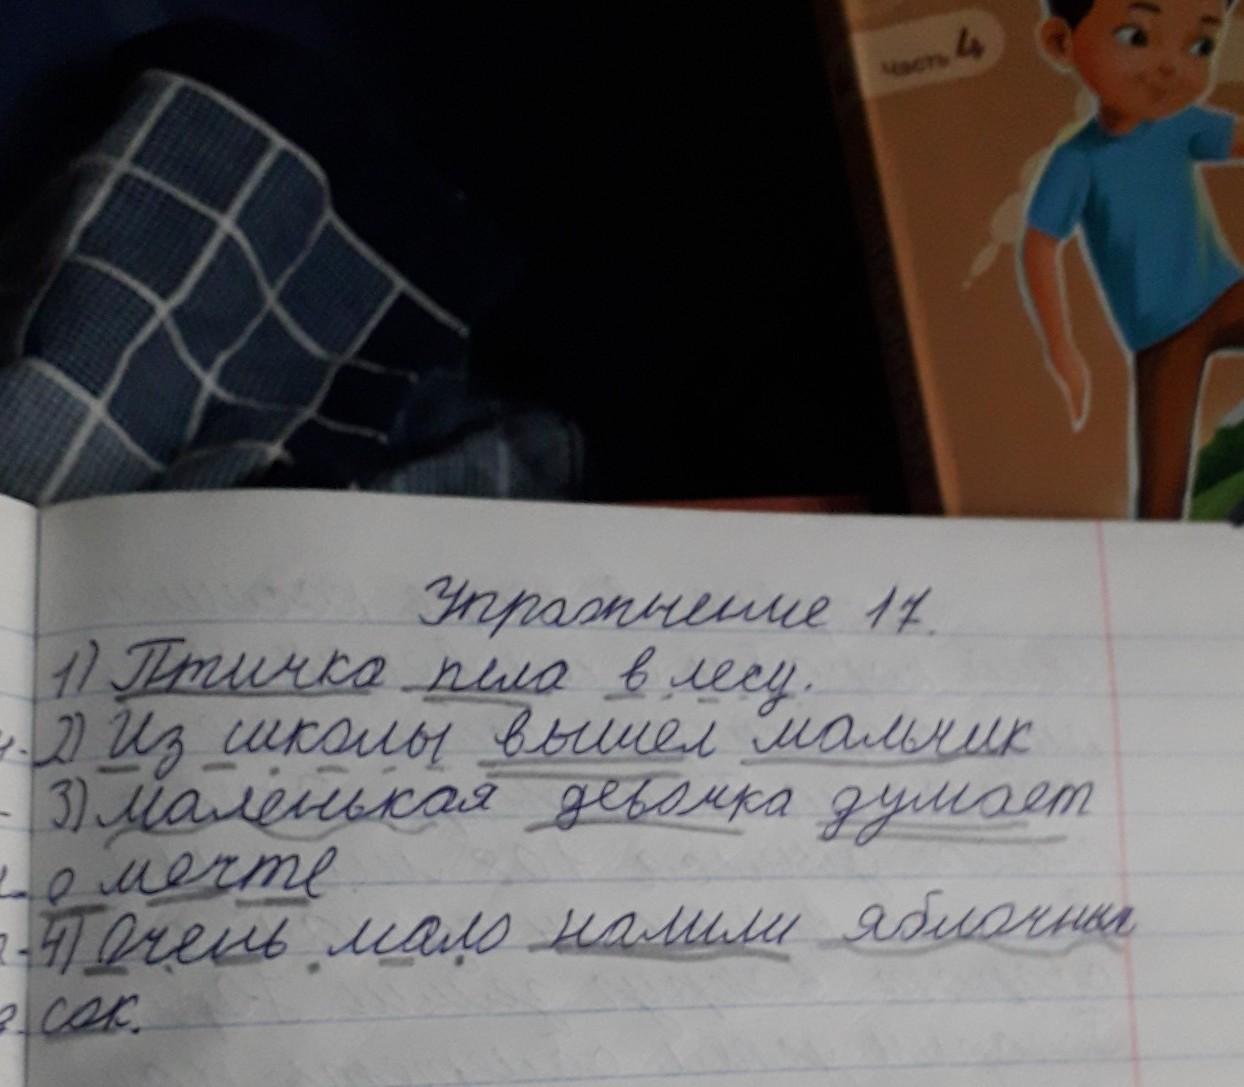 часть 4
Упражнение 17.
1) Птичка пела в лесу.
2) Из школы вышел мальчик
3) маленькая девочка думает
о мечте
4) Очень мало налили яблочный
сок.